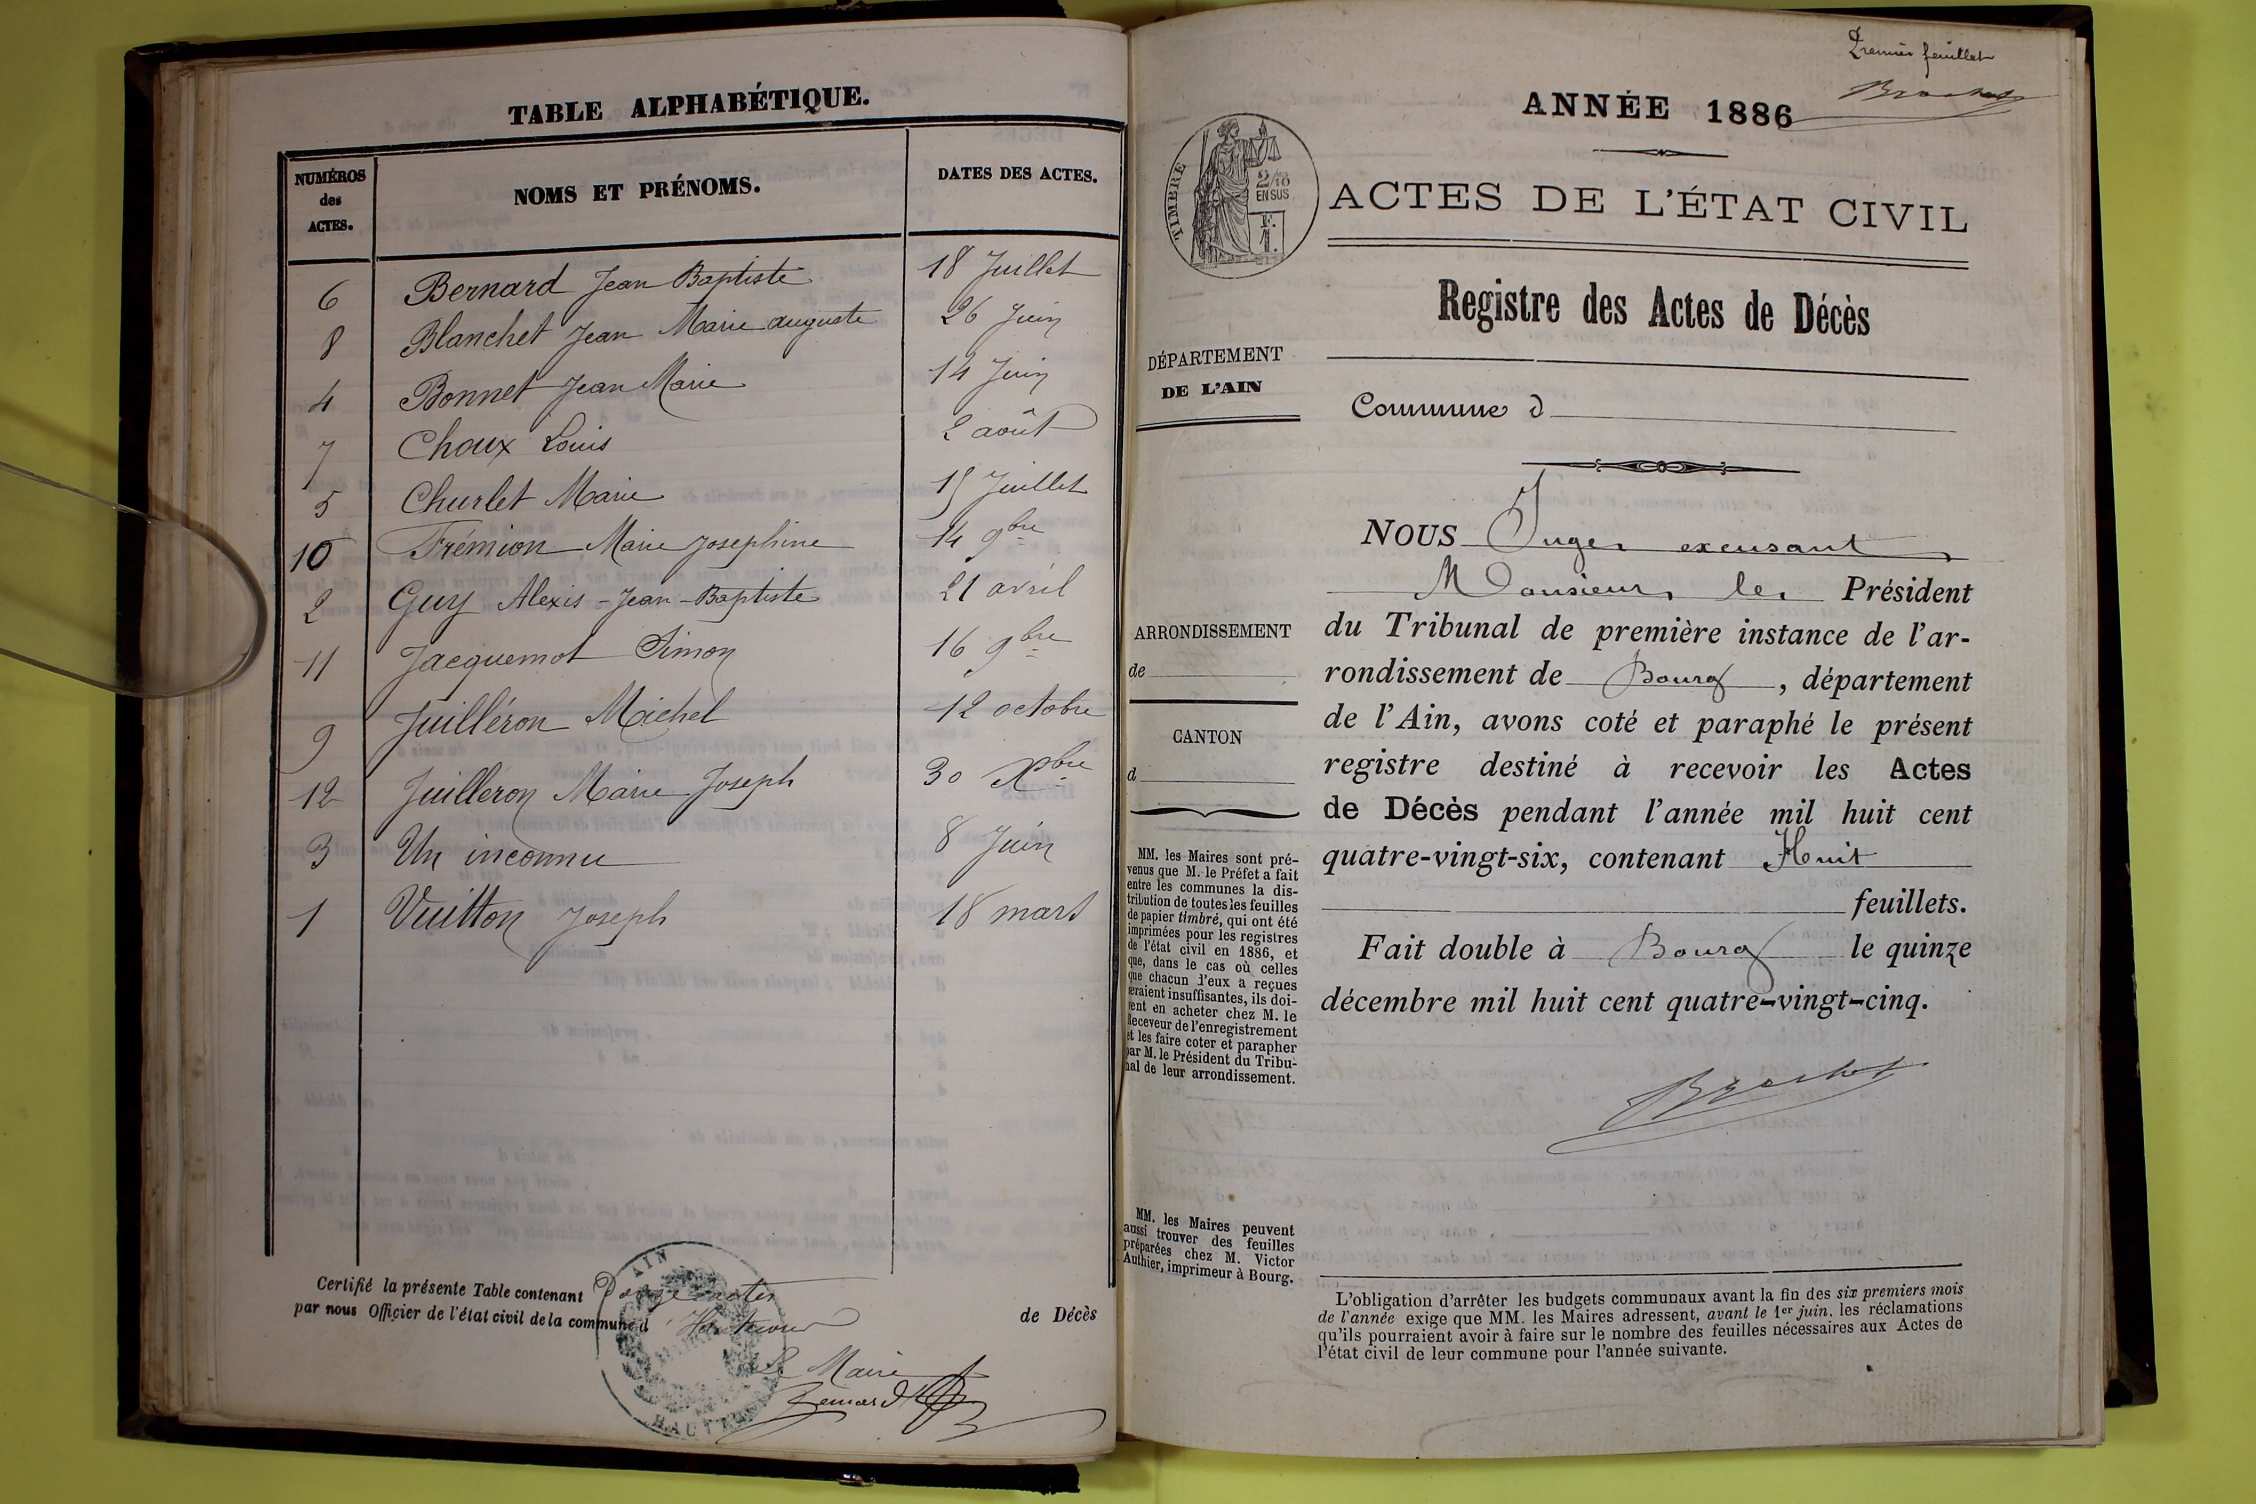 TABLE ALPHABÉTIQUE.
NUMÉROS
des
ACTES.
NOMS ET PRÉNOMS.
DATES DES ACTES.
6 Bernard Jean Baptiste 18 Juillet
8 Blanchet Jean Marie auguste 26 Juin
4 Bonnet Jean Marie 14 Juin
7 Choux Louis 2 août
5 Churlet Marie 15 Juillet
10 Frémion Marie Josephine 14 9bre
2 Guy Alexis-Jean-Baptiste 21 avril
11 Jacquemot Simon 16 9bre
9 Juilléron Michel 12 octobre
12 Juilléron Marie Joseph 30 Xbre
3 Un inconnu 8 Juin
1 Vuitton Joseph 18 mars
Certifié la présente Table contenant Douze actes
de Décès
par nous Officier de l'état civil de la commune d'Hautecour
Le Maire
Bernard
AIN
Premier feuillet
Brachet
ANNÉE 1886
TIMBRE
2/10
EN SUS
F.
1.
ACTES DE L'ÉTAT CIVIL
Registre des Actes de Décès
DÉPARTEMENT
DE L'AIN
Commune d
NOUS Juge excusant
Monsieur le Président
du Tribunal de première instance de l'ar-
rondissement de Bourg, département
de l'Ain, avons coté et paraphé le présent
registre destiné à recevoir les Actes
de Décès pendant l'année mil huit cent
quatre-vingt-six, contenant Huit
feuillets.
Fait double à Bourg le quinze
décembre mil huit cent quatre-vingt-cinq.
Brachet
ARRONDISSEMENT
de
CANTON
d
MM. les Maires sont pré-
venus que M. le Préfet a fait
entre les communes la dis-
tribution de toutes les feuilles
de papier timbré, qui ont été
imprimées pour les registres
de l'état civil en 1886, et
que, dans le cas où celles
que chacun d'eux a reçues
seraient insuffisantes, ils doi-
vent en acheter chez M. le
Receveur de l'enregistrement
et les faire coter et parapher
par M. le Président du Tribu-
nal de leur arrondissement.
MM. les Maires peuvent
aussi trouver des feuilles
préparées chez M. Victor
Authier, imprimeur à Bourg.
L'obligation d'arrêter les budgets communaux avant la fin des six premiers mois
de l'année exige que MM. les Maires adressent, avant le 1er juin, les réclamations
qu'ils pourraient avoir à faire sur le nombre des feuilles nécessaires aux Actes de
l'état civil de leur commune pour l'année suivante.